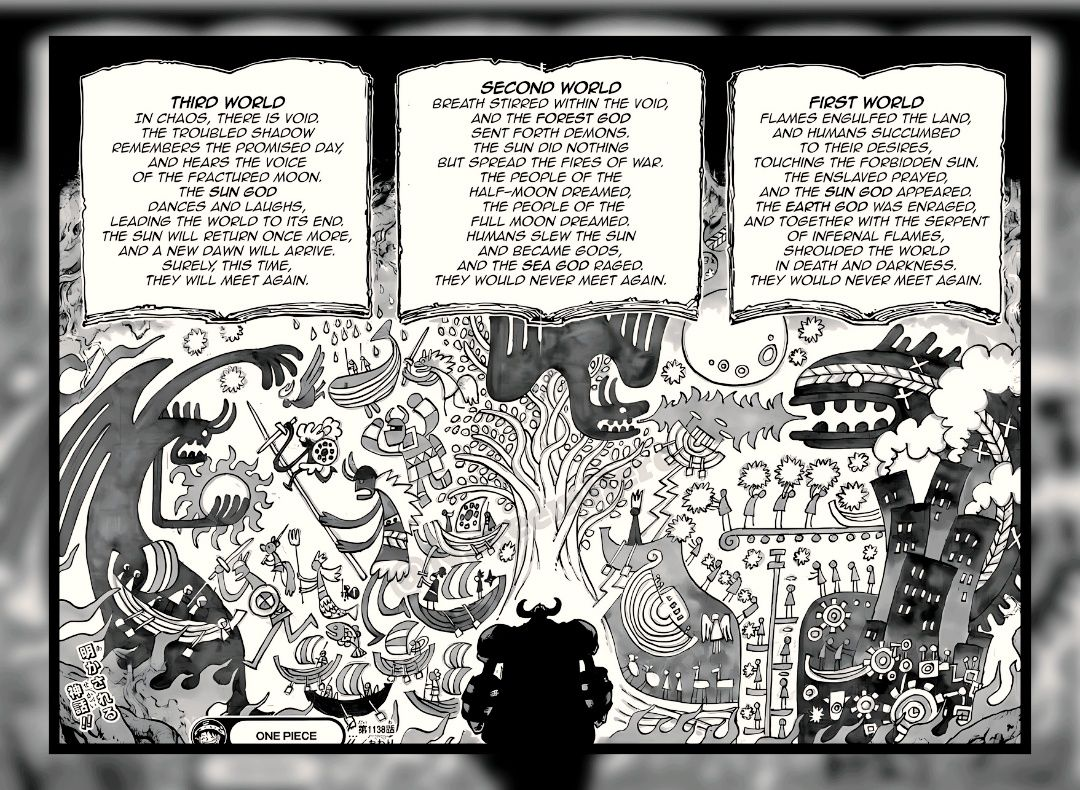 FIRST WORLD
FLAMES ENGULFED THE LAND,
AND HUMANS SUCCUMBED
TO THEIR DESIRES,
TOUCHING THE FORBIDDEN SUN.
THE ENSLAVED PRAYED,
AND THE SUN GOD APPEARED.
THE EARTH GOD WAS ENRAGED,
AND TOGETHER WITH THE SERPENT
OF INFERNAL FLAMES,
SHROUDED THE WORLD
IN DEATH AND DARKNESS.
THEY WOULD NEVER MEET AGAIN.
SECOND WORLD
BREATH STIRRED WITHIN THE VOID,
AND THE FOREST GOD
SENT FORTH DEMONS.
THE SUN DID NOTHING
BUT SPREAD THE FIRES OF WAR.
THE PEOPLE OF THE
HALF-MOON DREAMED,
THE PEOPLE OF THE
FULL MOON DREAMED.
HUMANS SLEW THE SUN
AND BECAME GODS,
AND THE SEA GOD RAGED.
THEY WOULD NEVER MEET AGAIN.
THIRD WORLD
IN CHAOS, THERE IS VOID.
THE TROUBLED SHADOW
REMEMBERS THE PROMISED DAY,
AND HEARS THE VOICE
OF THE FRACTURED MOON.
THE SUN GOD
DANCES AND LAUGHS,
LEADING THE WORLD TO ITS END.
THE SUN WILL RETURN ONCE MORE,
AND A NEW DAWN WILL ARRIVE.
SURELY, THIS TIME,
THEY WILL MEET AGAIN.
明かされる
神話!!
ONE PIECE
第1138話
おわり